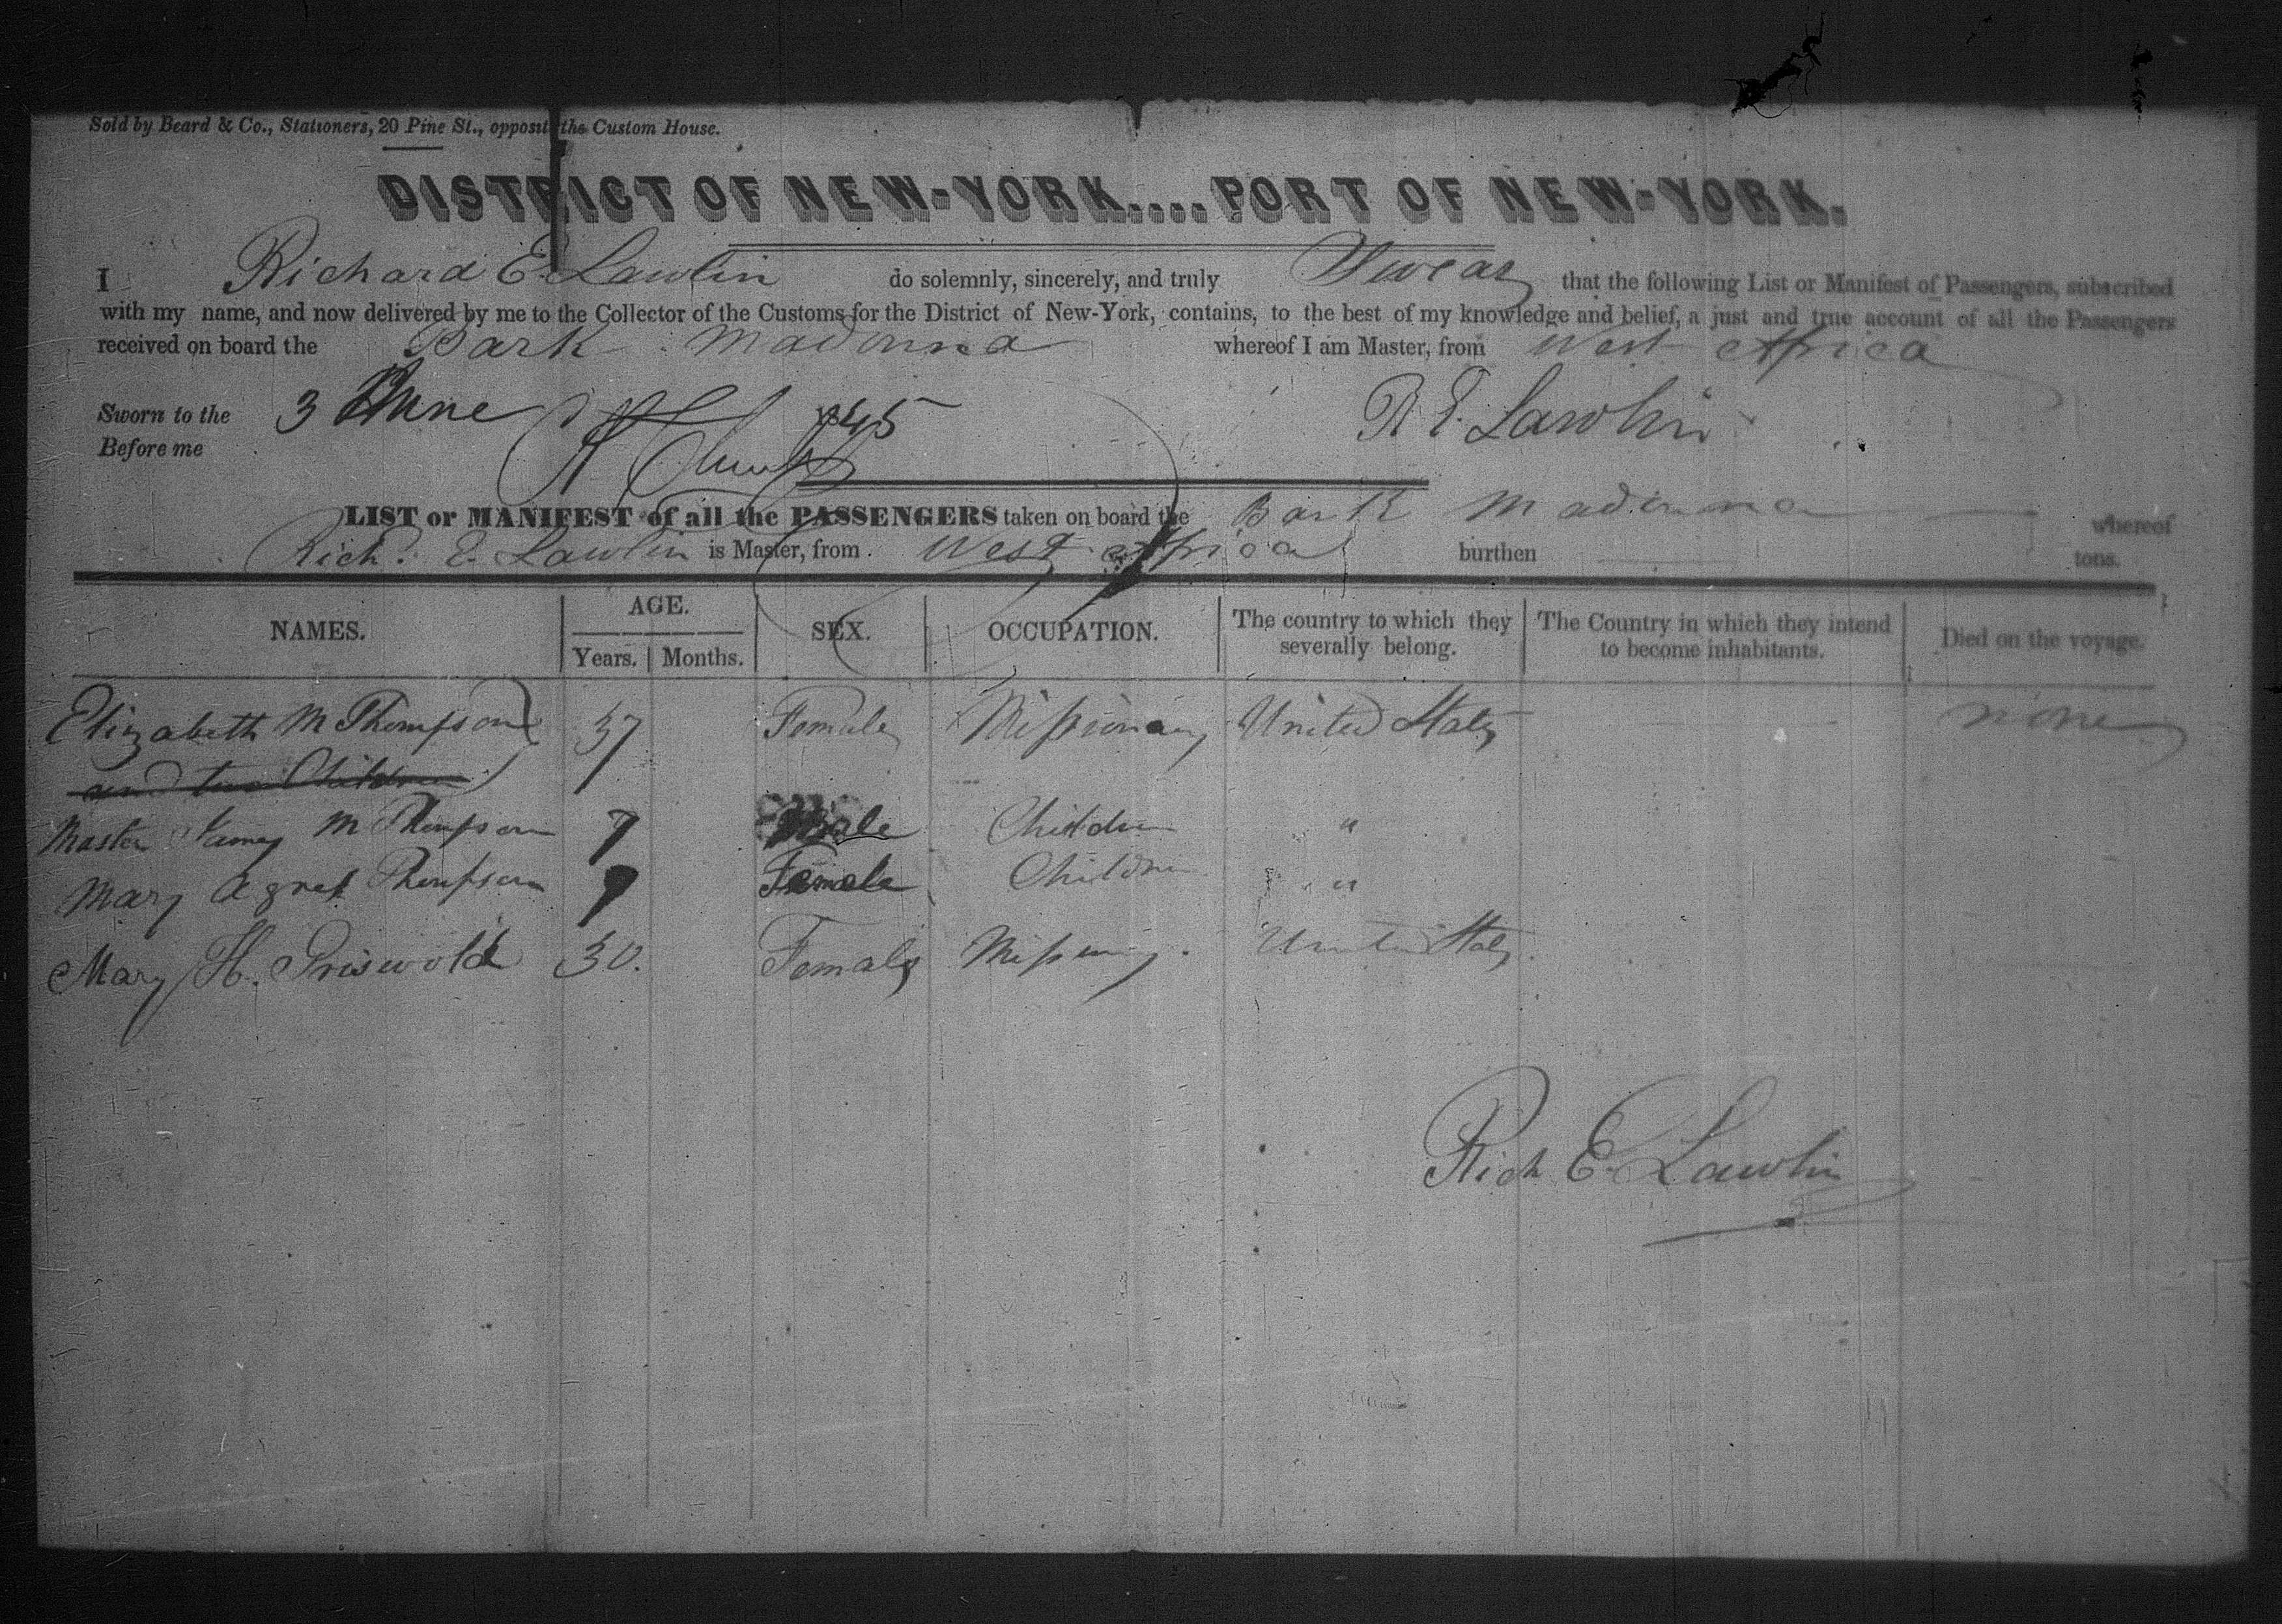 Sold by Beard & Co., Stationers, 20 Pine St., opposite the Custom House.
DISTRICT OF NEW-YORK....PORT OF NEW-YORK.
I Richard E. Lawlin do solemnly, sincerely, and truly Swear that the following List or Manifest of Passengers, subscribed
with my name, and now delivered by me to the Collector of the Customs for the District of New-York, contains, to the best of my knowledge and belief, a just and true account of all the Passengers
received on board the Bark Madonna whereof I am Master, from West Africa
Sworn to the 3 June 1845 R E. Lawlin
Before me
LIST or MANIFEST of all the PASSENGERS taken on board the Bark Madonna whereof
Rich. E. Lawlin is Master, from West Africa burthen tons.
NAMES. AGE. Years. Months. SEX. OCCUPATION. The country to which they severally belong. The Country in which they intend to become inhabitants. Died on the voyage.
Elizabeth M Thompson 37 Female Missionary United States none
and two Children
Master James M Thompson 7 Male Children "
Mary Agnes Thompson 9 Female Children "
Mary H. Griswold 30. Female Missionary United States
Rich E. Lawlin